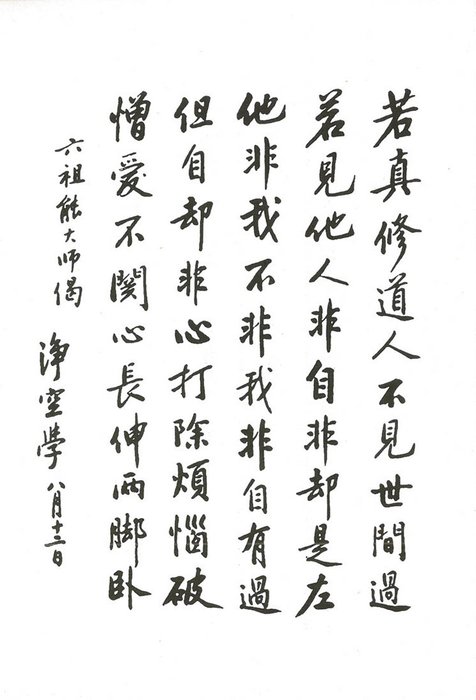 若真修道人不見世間過
若見他人非自非却是左
他非我不非我非自有過
但自却非心打除煩惱破
憎愛不關心長伸兩脚卧
六祖能大师偈
淨空學
八月十二日